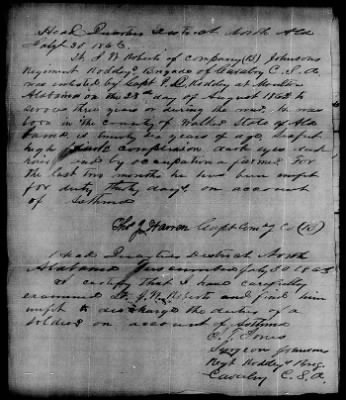 Head Quarters District North Ala
July 30 1863
Lt J W Roberts of company (B) Johnsons
Regiment Roddeys Brigade of Cavalry C.S.A.
was enlisted by Capt P. D. Roddey at Moulton
Alabama on the day of August 1862 to
service three years or during the war, he was
born in the county of Walker State of Ala
bama, is twenty six years of age, feet
high complexion dark eyes dark
hair and by occupation a farmer. For
the last two months he has been unfit
for duty thirty days on account
of Asthma
Capt Comdg Co (B)
Head Quarters District North
Alabama Tuscumbia July 30 1863
I certify that I have carefully
examined Lt. J. W. Roberts and find him
unfit to discharge the duties of a
soldier on account of Asthma
Jones
Surgeon Johnsons
Regt Roddeys Brig.
Cavalry C.S.A.